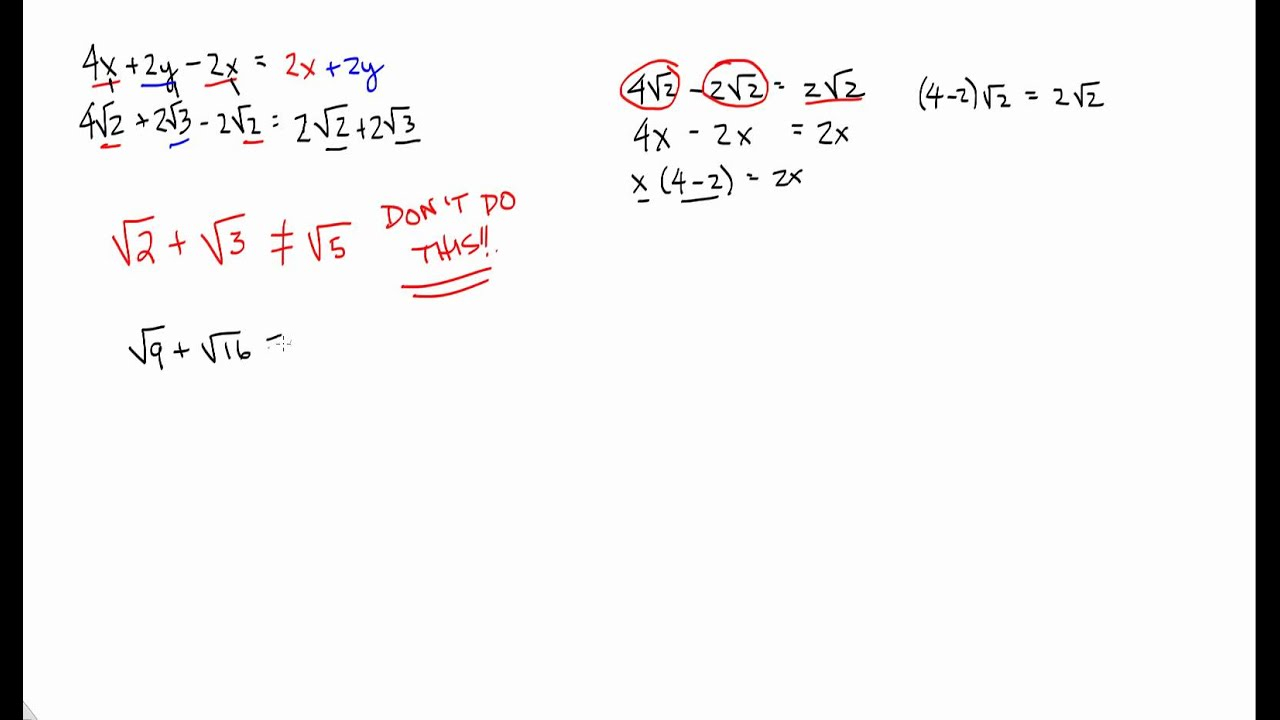 4x + 2y - 2x = 2x + 2y
4√2 + 2√3 - 2√2 = 2√2 + 2√3
√2 + √3 ≠ √5 DON'T DO
THIS!!
√9 + √16 =
4√2 - 2√2 = 2√2
4x - 2x = 2x
x (4-2) = 2x
(4-2)√2 = 2√2